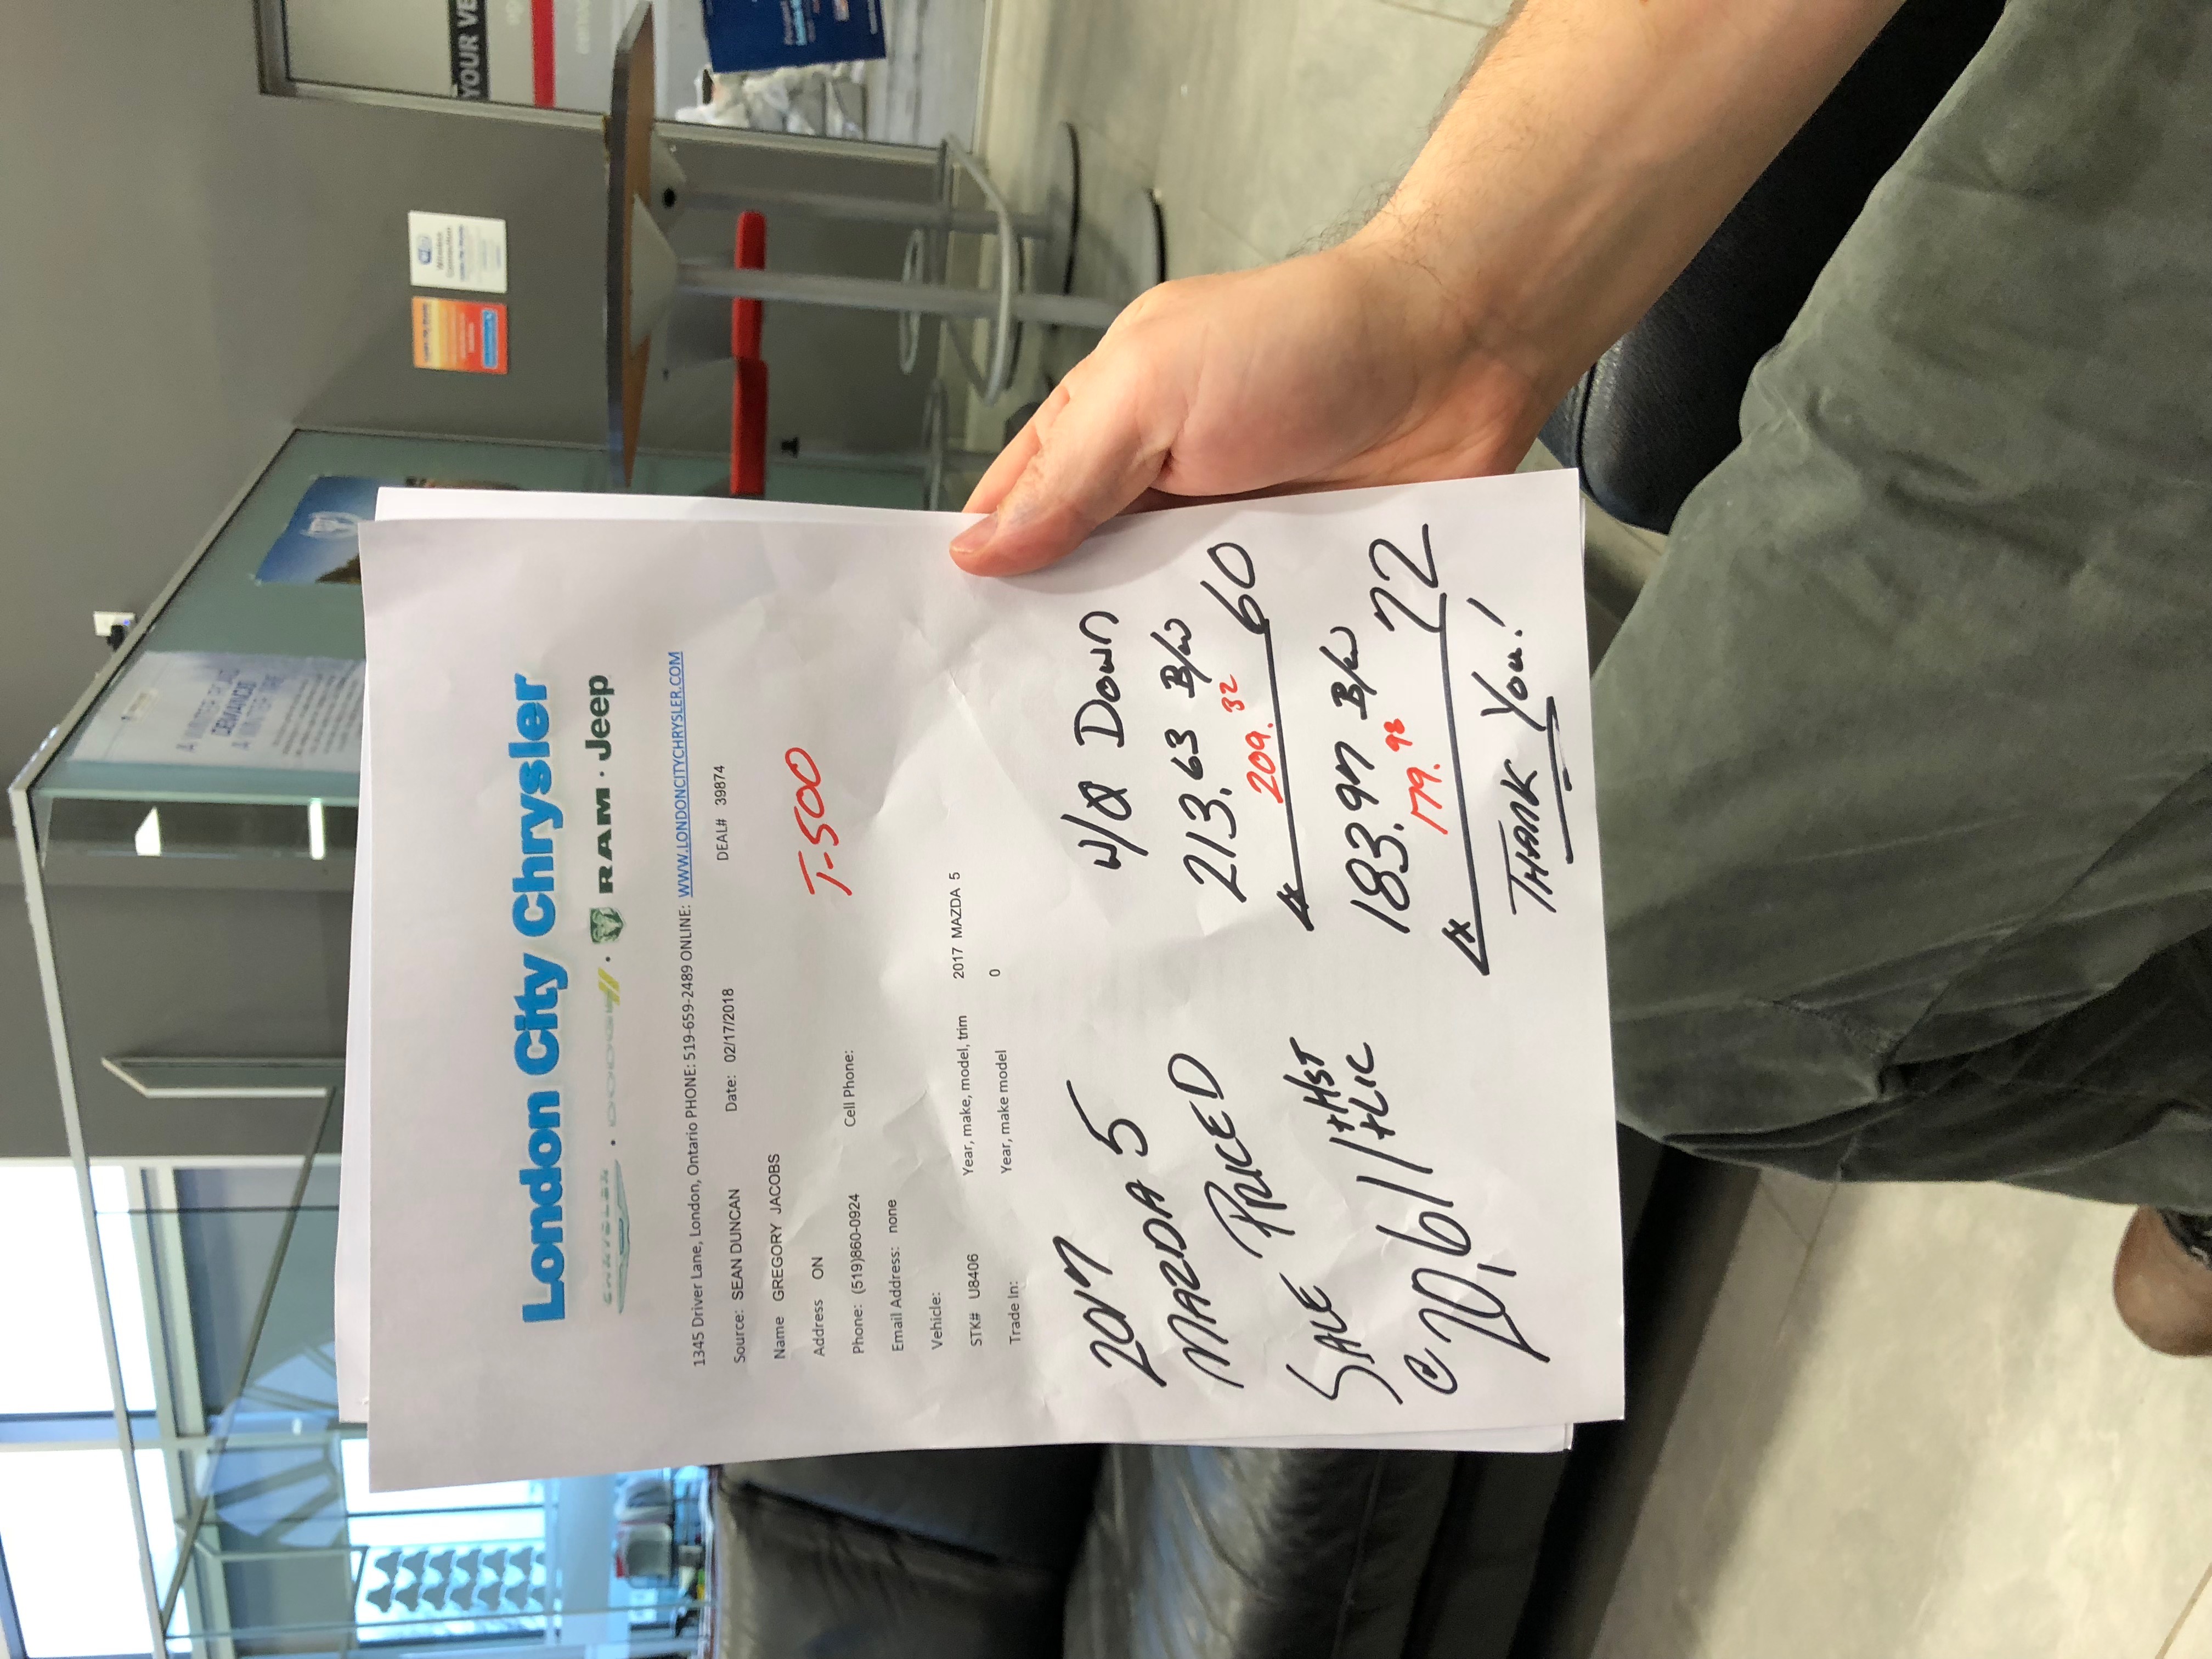 London City Chrysler
CHRYSLER · DODGE · RAM · Jeep
1345 Driver Lane, London, Ontario PHONE: 519-659-2489 ONLINE: WWW.LONDONCITYCHRYSLER.COM
Source: SEAN DUNCAN Date: 02/17/2018 DEAL# 39874
Name GREGORY JACOBS
T-500
Address ON
Phone: (519)860-0924 Cell Phone:
Email Address: none
Vehicle:
STK# U8406 Year, make, model, trim 2017 MAZDA 5
Trade In: Year, make model 0
2017
MAZDA 5
SALE PRICED
@ 20,611 +HST
+LIC
W/Ø DOWN
213.63 B/W
209.32
60
183.97 B/W
179.98
72
THANK YOU!
YOUR VE
A WINTER
DEMANDS
A WINTER TIRE